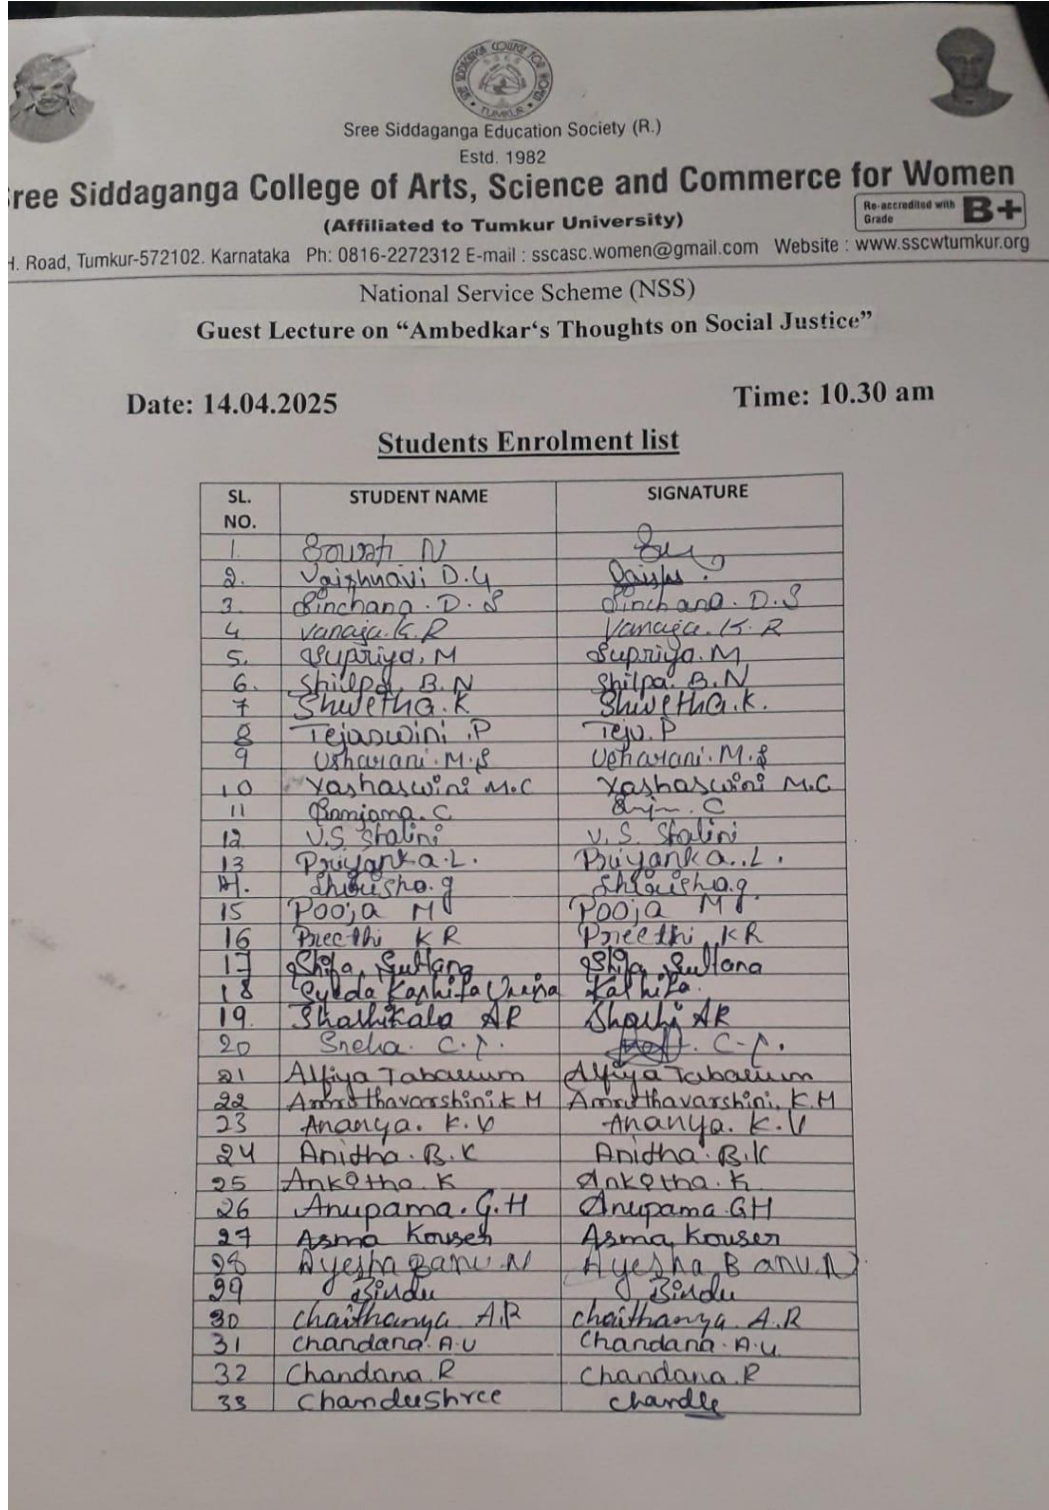 SREE SIDDAGANGA COLLEGE FOR WOMEN
S S E S
TUMKUR
Sree Siddaganga Education Society (R.)
Estd. 1982
ree Siddaganga College of Arts, Science and Commerce for Women
(Affiliated to Tumkur University)
Re-accredited with Grade B+
H. Road, Tumkur-572102. Karnataka Ph: 0816-2272312 E-mail : sscasc.women@gmail.com Website : www.sscwtumkur.org
National Service Scheme (NSS)
Guest Lecture on “Ambedkar‘s Thoughts on Social Justice”
Date: 14.04.2025 Time: 10.30 am
Students Enrolment list
SL. NO. STUDENT NAME SIGNATURE
1. N
2. Vaishnavi D.G
3. Sinchana. D. S Sinchana. D.S
4 Vanaja. K. R Vanaja. K. R
5. Supriya. M Supriya. M
6. Shilpa. B.N Shilpa. B.N
7 Shwetha. K Shwetha. K.
8 Tejaswini .P Teju. P
9 Usharani. M.S Usharani. M.S
10 Yashaswini M.C Yashaswini M.C
11 C C
12 V.S. Shalini V. S. Shalini
13 Priyanka. L. Priyanka. L.
14. Shirisha. g Shirisha. g
15 Pooja M Pooja M
16 Preethi KR Preethi KR
17 Shifa Sultana Shifa Sultana
18 Syeda Kashifa Kashifa
19. Shashikala AR Shashi AR
20 Sneha. C.
21 Alfiya Tabassum Alfiya Tabassum
22 Amruthavarshini.K M Amruthavarshini. K.M
23 Ananya. K.V Ananya. K.V
24 Anitha. B. K Anitha. B.K
25 Ankitha. K Ankitha. K
26 Anupama. G. H Anupama GH
27 Asma Kouser Asma Kouser
28 Ayesha Banu. N Ayesha Banu. N
29 Bindu Bindu
30 Chaithanya A.R Chaithanya A.R
31 Chandana. A.U Chandana. A.U
32 Chandana. R Chandana. R
33 Chandushree Chandu